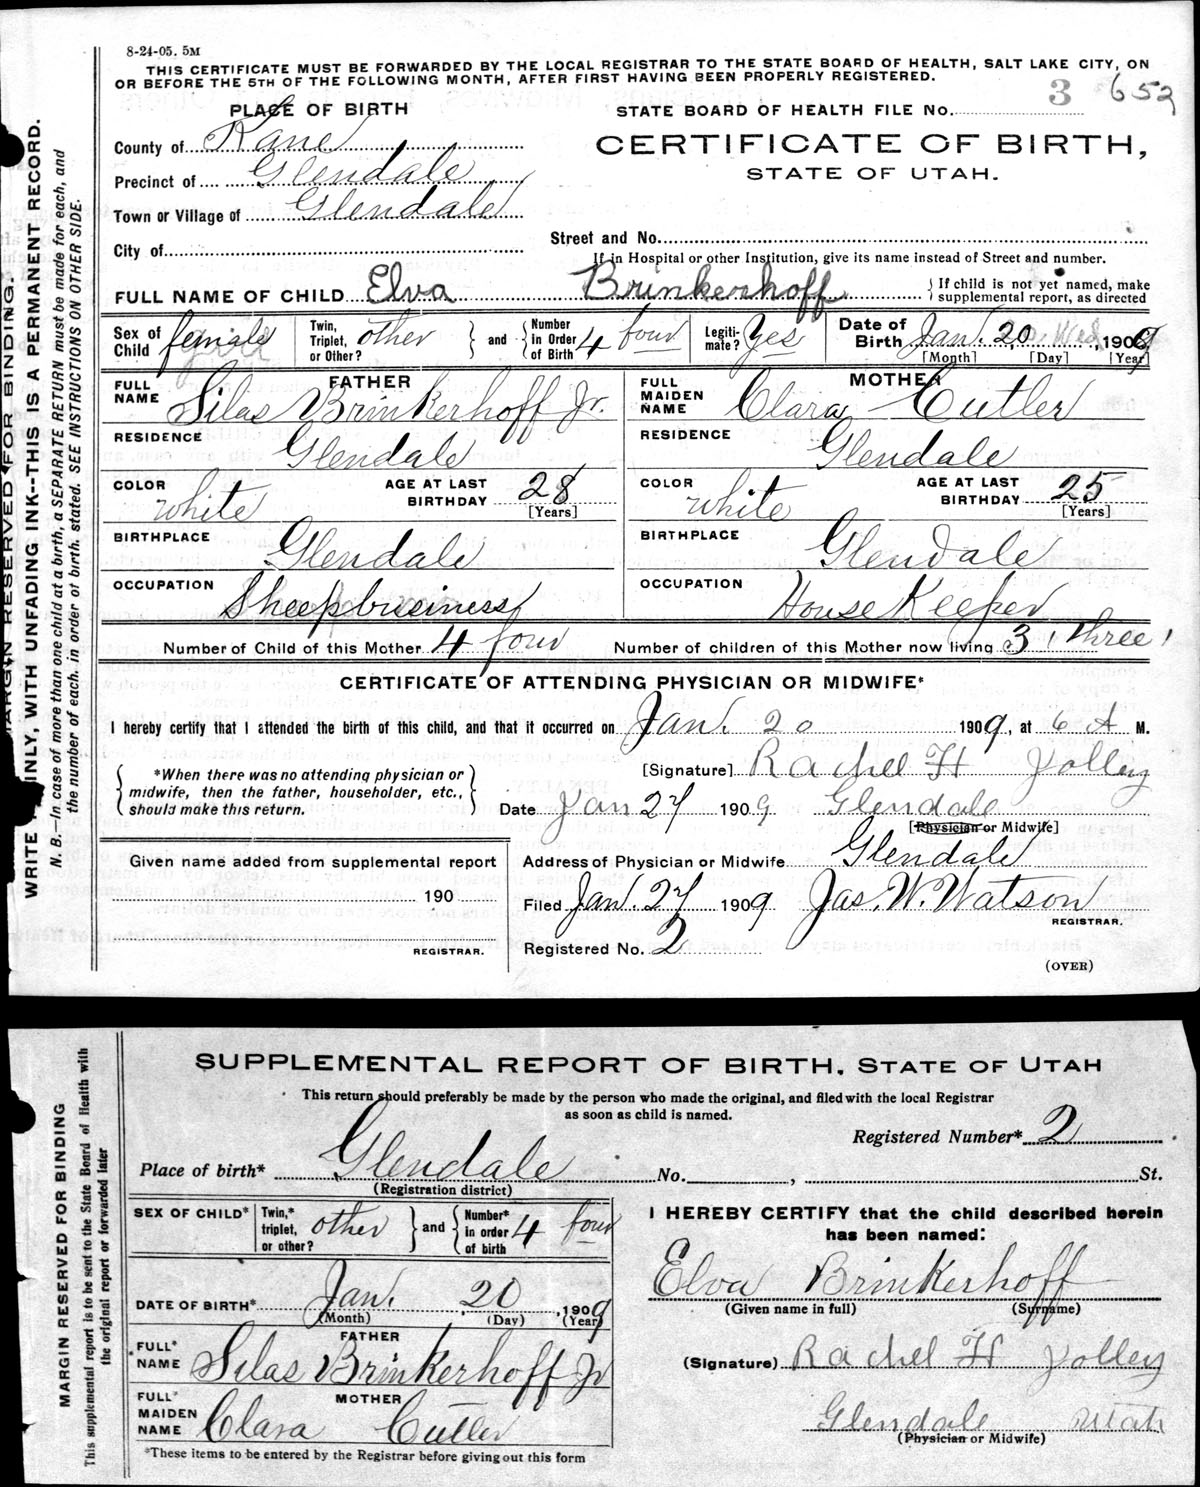 8-24-05. 5M
THIS CERTIFICATE MUST BE FORWARDED BY THE LOCAL REGISTRAR TO THE STATE BOARD OF HEALTH, SALT LAKE CITY, ON
OR BEFORE THE 5TH OF THE FOLLOWING MONTH, AFTER FIRST HAVING BEEN PROPERLY REGISTERED.
PLACE OF BIRTH
STATE BOARD OF HEALTH FILE No. 3 652
County of Kane
CERTIFICATE OF BIRTH,
STATE OF UTAH.
Precinct of Glendale
Town or Village of Glendale
City of
Street and No.
If in Hospital or other Institution, give its name instead of Street and number.
FULL NAME OF CHILD Elva Brinkerhoff
If child is not yet named, make
supplemental report, as directed
Sex of Child female
Twin, Triplet, or Other? other and Number in Order of Birth 4 four
Legiti-mate? Yes
Date of Birth Jan. 20, 1909
[Month] [Day] [Year]
FATHER
FULL NAME Silas Brinkerhoff Jr.
MOTHER
FULL MAIDEN NAME Clara Cutler
RESIDENCE Glendale
RESIDENCE Glendale
COLOR white AGE AT LAST BIRTHDAY 28 [Years]
COLOR white AGE AT LAST BIRTHDAY 25 [Years]
BIRTHPLACE Glendale
BIRTHPLACE Glendale
OCCUPATION Sheepbusiness
OCCUPATION House Keeper
Number of Child of this Mother 4 four Number of children of this Mother now living 3 three
CERTIFICATE OF ATTENDING PHYSICIAN OR MIDWIFE*
I hereby certify that I attended the birth of this child, and that it occurred on Jan. 20 1909, at 6 A M.
*When there was no attending physician or
midwife, then the father, householder, etc.,
should make this return.
[Signature] Rachel H Jolley
Date Jan 27 1909 Glendale
[Physician or Midwife]
Given name added from supplemental report
190
REGISTRAR.
Address of Physician or Midwife Glendale
Filed Jan. 27 1909 Jas. W. Watson
REGISTRAR.
Registered No. 2
(OVER)
MARGIN RESERVED FOR BINDING.
WRITE PLAINLY, WITH UNFADING INK--THIS IS A PERMANENT RECORD.
N. B.—In case of more than one child at a birth, a SEPARATE RETURN must be made for each, and
the number of each, in order of birth, stated. SEE INSTRUCTIONS ON OTHER SIDE.
SUPPLEMENTAL REPORT OF BIRTH, STATE OF UTAH
This return should preferably be made by the person who made the original, and filed with the local Registrar
as soon as child is named.
Registered Number* 2
Place of birth* Glendale No. , St.
(Registration district)
SEX OF CHILD* Twin,* triplet, or other? other and Number* in order of birth 4 four
DATE OF BIRTH* Jan. 20, 1909
(Month) (Day) (Year)
FATHER
FULL* NAME Silas Brinkerhoff Jr
MOTHER
FULL* MAIDEN NAME Clara Cutler
*These items to be entered by the Registrar before giving out this form
I HEREBY CERTIFY that the child described herein
has been named:
Elva Brinkerhoff
(Given name in full) (Surname)
(Signature) Rachel H Jolley
Glendale Utah
(Physician or Midwife)
MARGIN RESERVED FOR BINDING
This supplemental report is to be sent to the State Board of Health with
the original report or forwarded later